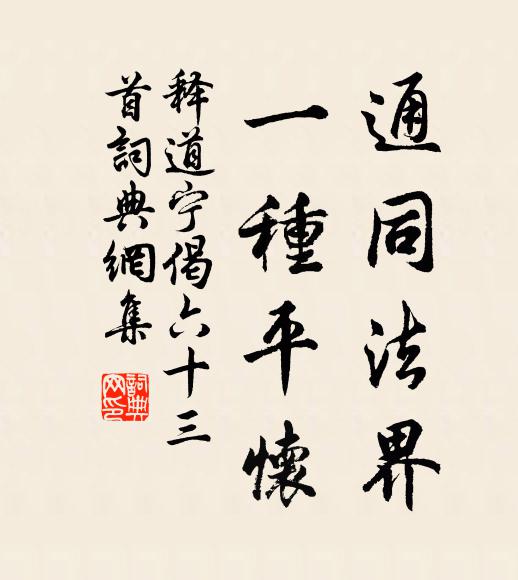 通同法界
一種平懷
释道宁偈六十三
首詞典網集
詞典
网印